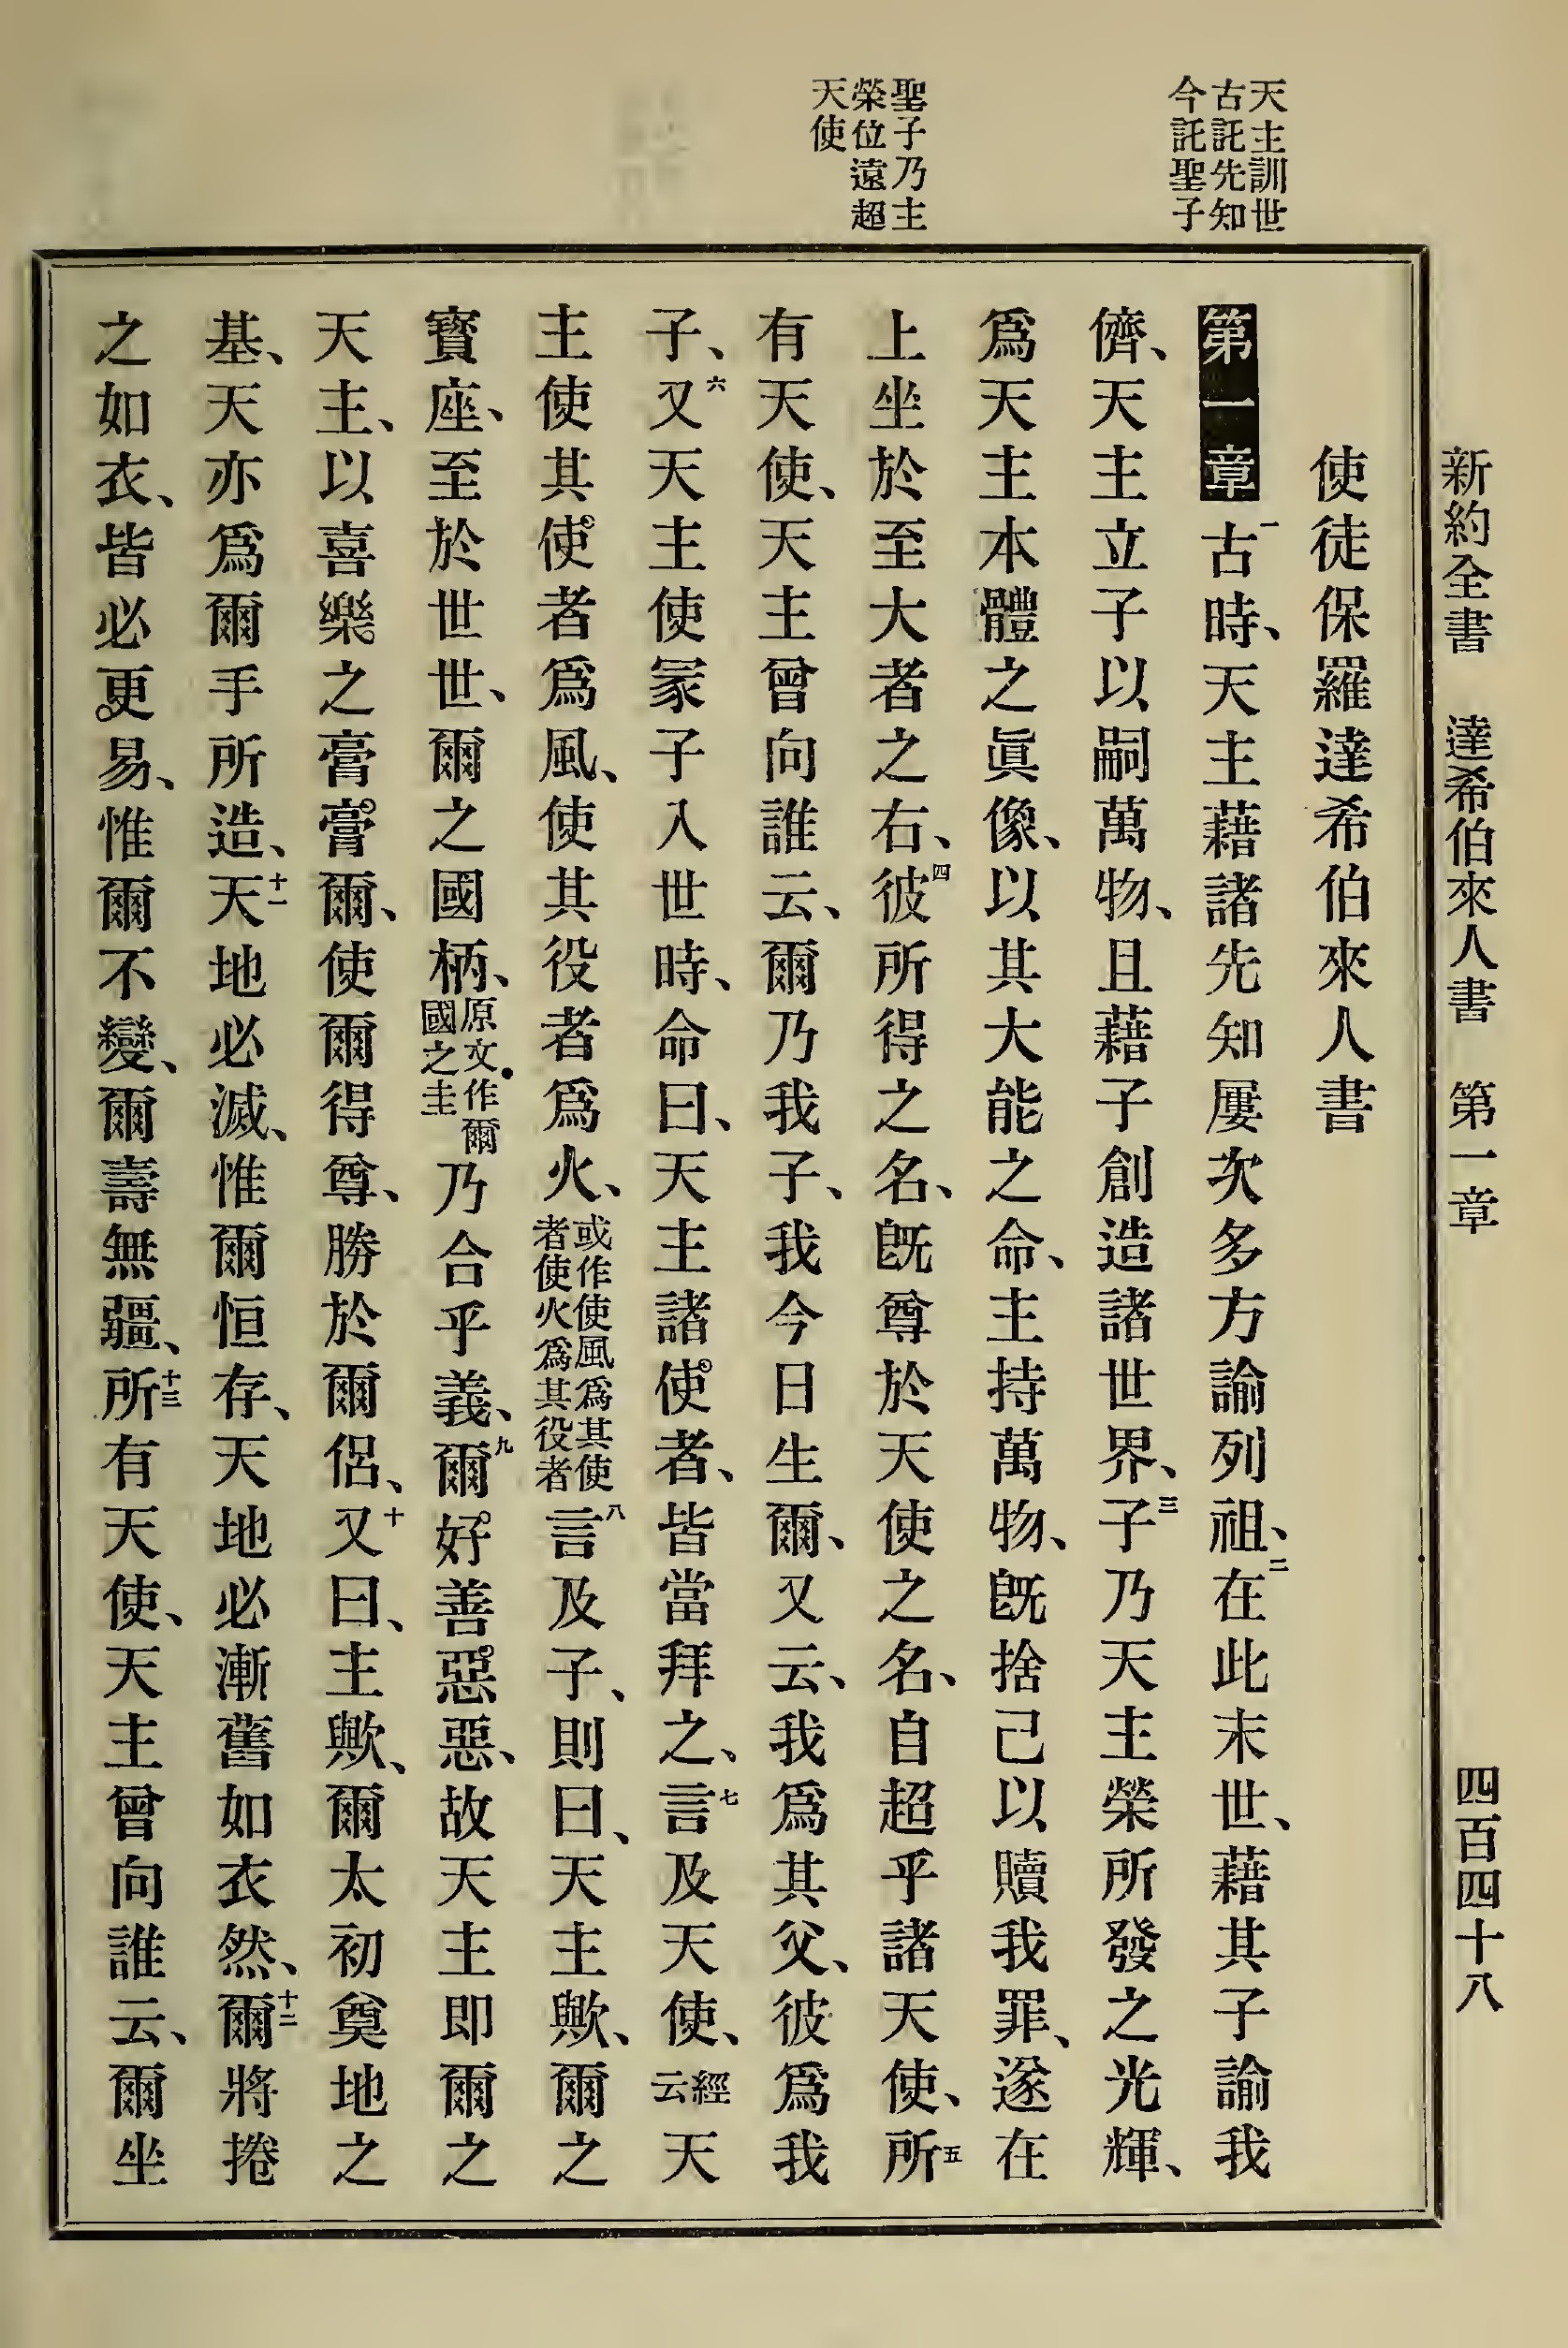 新約全書　達希伯來人書　第一章　四百四十八
天主訓世
古託先知
今託聖子
聖子乃主
榮位遠超
天使
使徒保羅達希伯來人書
第一章 一古時、天主藉諸先知屢次多方諭列祖、二在此末世、藉其子諭我
儕、天主立子以嗣萬物、且藉子創造諸世界、三子乃天主榮所發之光輝、
爲天主本體之眞像、以其大能之命、主持萬物、旣捨己以贖我罪、遂在
上坐於至大者之右、四彼所得之名、旣尊於天使之名、自超乎諸天使、五所
有天使、天主曾向誰云、爾乃我子、我今日生爾、又云、我爲其父、彼爲我
子、六又天主使冢子入世時、命曰、天主諸使者、皆當拜之、七言及天使、經云天
主使其使者爲風、使其役者爲火、或作使風爲其使者使火爲其役者八言及子、則曰、天主歟、爾之
寶座、至於世世、爾之國柄、原文作爾國之圭乃合乎義、九爾好善惡惡、故天主即爾之
天主、以喜樂之膏膏爾、使爾得尊、勝於爾侶、十又曰、主歟、爾太初奠地之
基、天亦爲爾手所造、十一天地必滅、惟爾恒存、天地必漸舊如衣然、十二爾將捲
之如衣、皆必更易、惟爾不變、爾壽無疆、十三所有天使、天主曾向誰云、爾坐